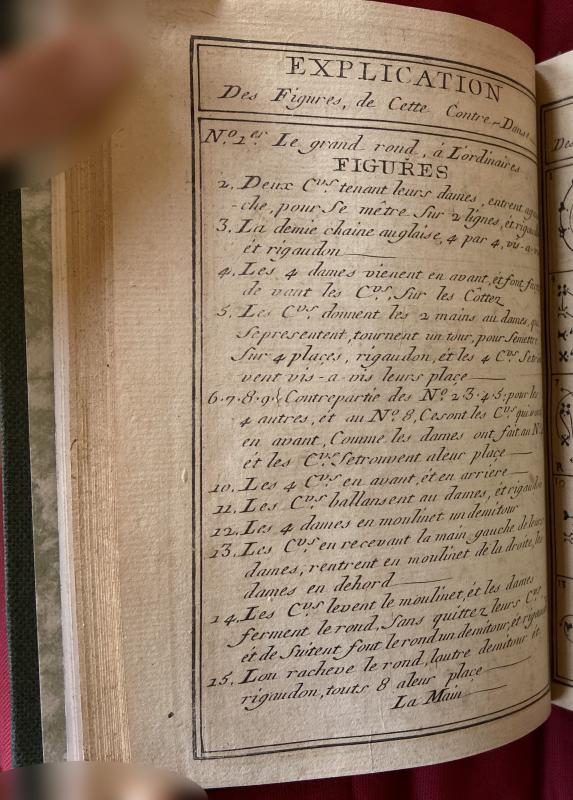 EXPLICATION
Des Figures, de Cette Contre-Danse
N.º 1.er Le grand rond, à L'ordinaires
FIGURES
2. Deux C.vs tenant leurs dames, entrent
-che, pour se mêtre Sur 2 lignes, ét
3. La demie chaine anglaise, 4 par 4, vis-a-
ét rigaudon
4. Les 4 dames vienent en avant, ét font
de vant les C.vs, Sur les Côttez
5. Les C.vs donnent les 2 mains au dames,
Sepresentent, tournent un tour, pour Semettre
Sur 4 places, rigaudon, ét les 4 C.vs
vent vis-a-vis leurs place
6.7.8.9. Contrepartie des N.º 2.3.4.5. pour les
4 autres, ét au N.º 8, Cesont les C.vs qui
en avant, Comme les dames ont fait au N.º
ét les C.vs Setrouvent aleur place
10. Les 4 C.vs en avant, ét en arriere
11. Les C.vs ballansent au dames, ét
12. Les 4 dames en moulinet un demitour
13. Les C.vs en recevant la main gauche de leurs
dames, rentrent en moulinet de la droite, les
dames en dehord
14. Les C.vs levent le moulinet, ét les dames
ferment le rond, Sans quittez leurs C.vs
ét de Suitent font le rond un demitour, ét
15. Lon racheve le rond, lautre demitour ét
rigaudon, touts 8 aleur place
La Main
Des